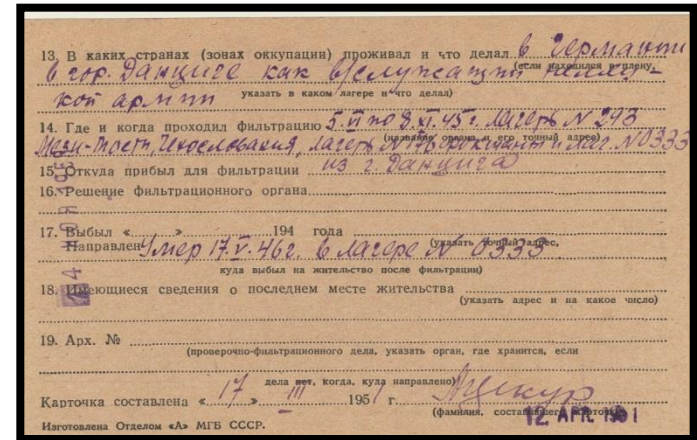 13. В каких странах (зонах оккупации) проживал и что делал в Германии
(если находился в плену,
в гор. Данциге как в/служащий немец-
кой армии
указать в каком лагере и что делал)
14. Где и когда проходил фильтрацию 5.VI по 8.XI.45 г. Лагерь N 293
(название органа и его точный адрес)
Чехословакия, лагерь N 176 Фокшаны и лаг. N 0333
15. Откуда прибыл для фильтрации из г. Данцига
16. Решение фильтрационного органа
17. Выбыл « » 194 года
Направлен Умер 17.V.46 г. в лагере N 0333
(указать точный адрес,
куда выбыл на жительство после фильтрации)
18. Имеющиеся сведения о последнем месте жительства
(указать адрес и на какое число)
19. Арх. №
(проверочно-фильтрационного дела, указать орган, где хранится, если
дела нет, когда, куда направлено)
Карточка составлена « 17 » III 1951 г.
(фамилия, составившего карточку)
12 APR 1951
Изготовлена Отделом «А» МГБ СССР.